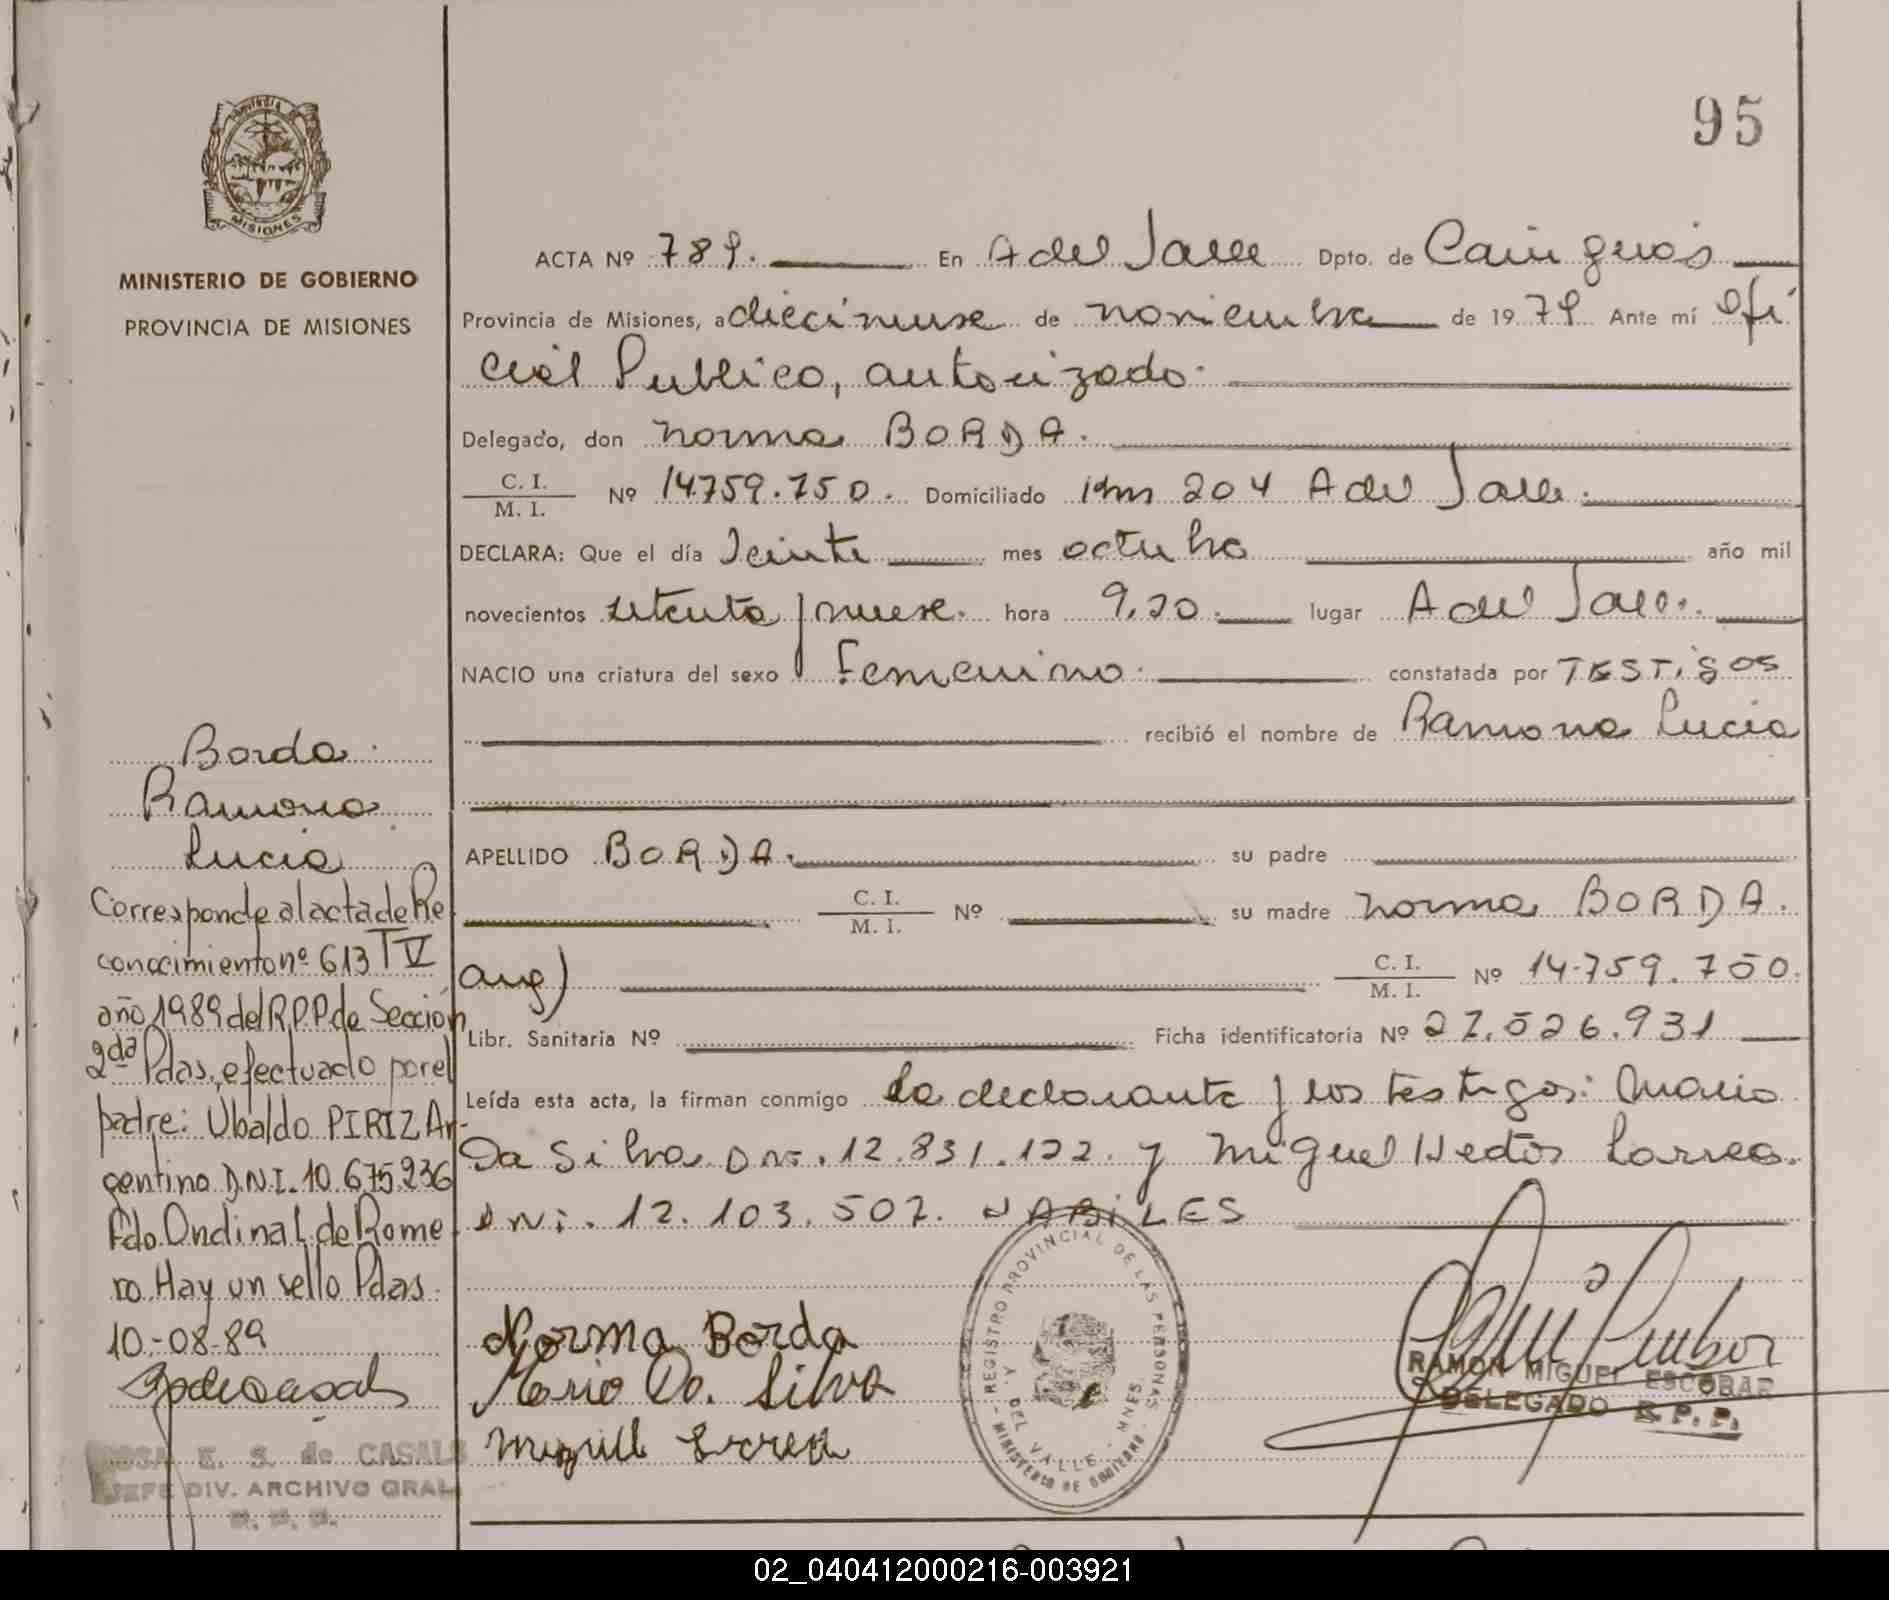 95
MISIONES
MINISTERIO DE GOBIERNO
PROVINCIA DE MISIONES
ACTA Nº 789. En A del Valle Dpto. de Cainguás
Provincia de Misiones, a diecinueve de noviembre de 1979 Ante mí Ofi
cial Publico, autorizado.
Delegado, don Norma BORDA.
C. I.
M. I.
Nº 14.759.750. Domiciliado Km 204 A del Valle.
DECLARA: Que el día Veinte mes octubre año mil
novecientos setenta y nueve. hora 9,20. lugar A del Valle.
NACIO una criatura del sexo Femenino. constatada por TESTigos
recibió el nombre de Ramona Lucia
APELLIDO BORDA. su padre
C. I.
M. I.
Nº su madre Norma BORDA.
arg) C. I.
M. I.
Nº 14.759.750.
Libr. Sanitaria Nº Ficha identificatoria Nº 27.526.931
Leída esta acta, la firman conmigo la declarante y los testigos: Mario
Da Silva DNI. 12.831.122. y Miguel Hector Larrea.
DNI. 12.103.507. HABILES
Norma Borda
Mario Da. Silva
Miguel Larrea
REGISTRO PROVINCIAL DE LAS PERSONAS
DEL VALLE - MNES.
MINISTERIO DE GOBIERNO
RAMON MIGUEL ESCOBAR
DELEGADO R. P. P.
Borda.
Ramona
Lucia
Corresponde al acta de Re
conocimiento nº 613 T V
año 1989 del R.P.P. de Sección
2da Pdas. efectuado por el
padre: Ubaldo PIRIZ Ar-
gentino D.N.I. 10.675.236
Fdo. Ondina L. de Rome
ro. Hay un sello Pdas.
10-08-89
ROSA E. S. de CASALS
JEFE DIV. ARCHIVO GRAL.
R. P. P.
02_040412000216-003921